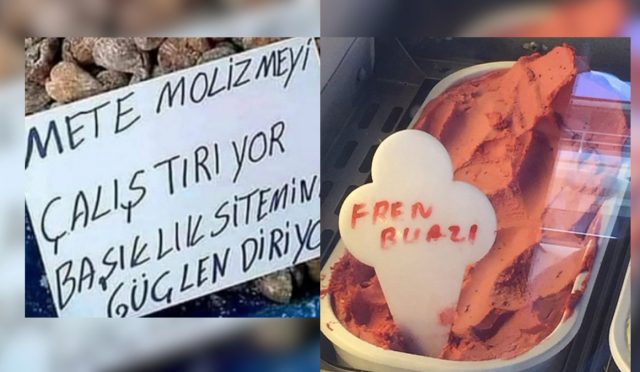 METE MOLİZMEYİ
ÇALIŞTIRIYOR
BAŞIKLIK SİTEMİN
GÜĞLENDİRİYO
FREN
BUAZI